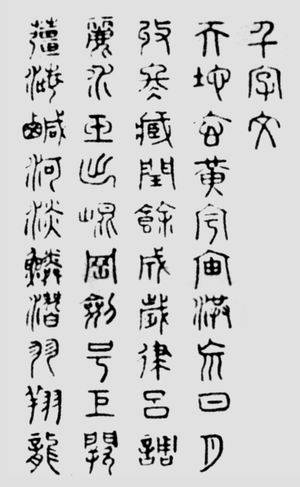 千字文
天地玄黃宇宙洪荒日月
收冬藏閏餘成歲律呂調
麗水玉出崐岡劍号巨闕
薑海鹹河淡鱗潛羽翔龍